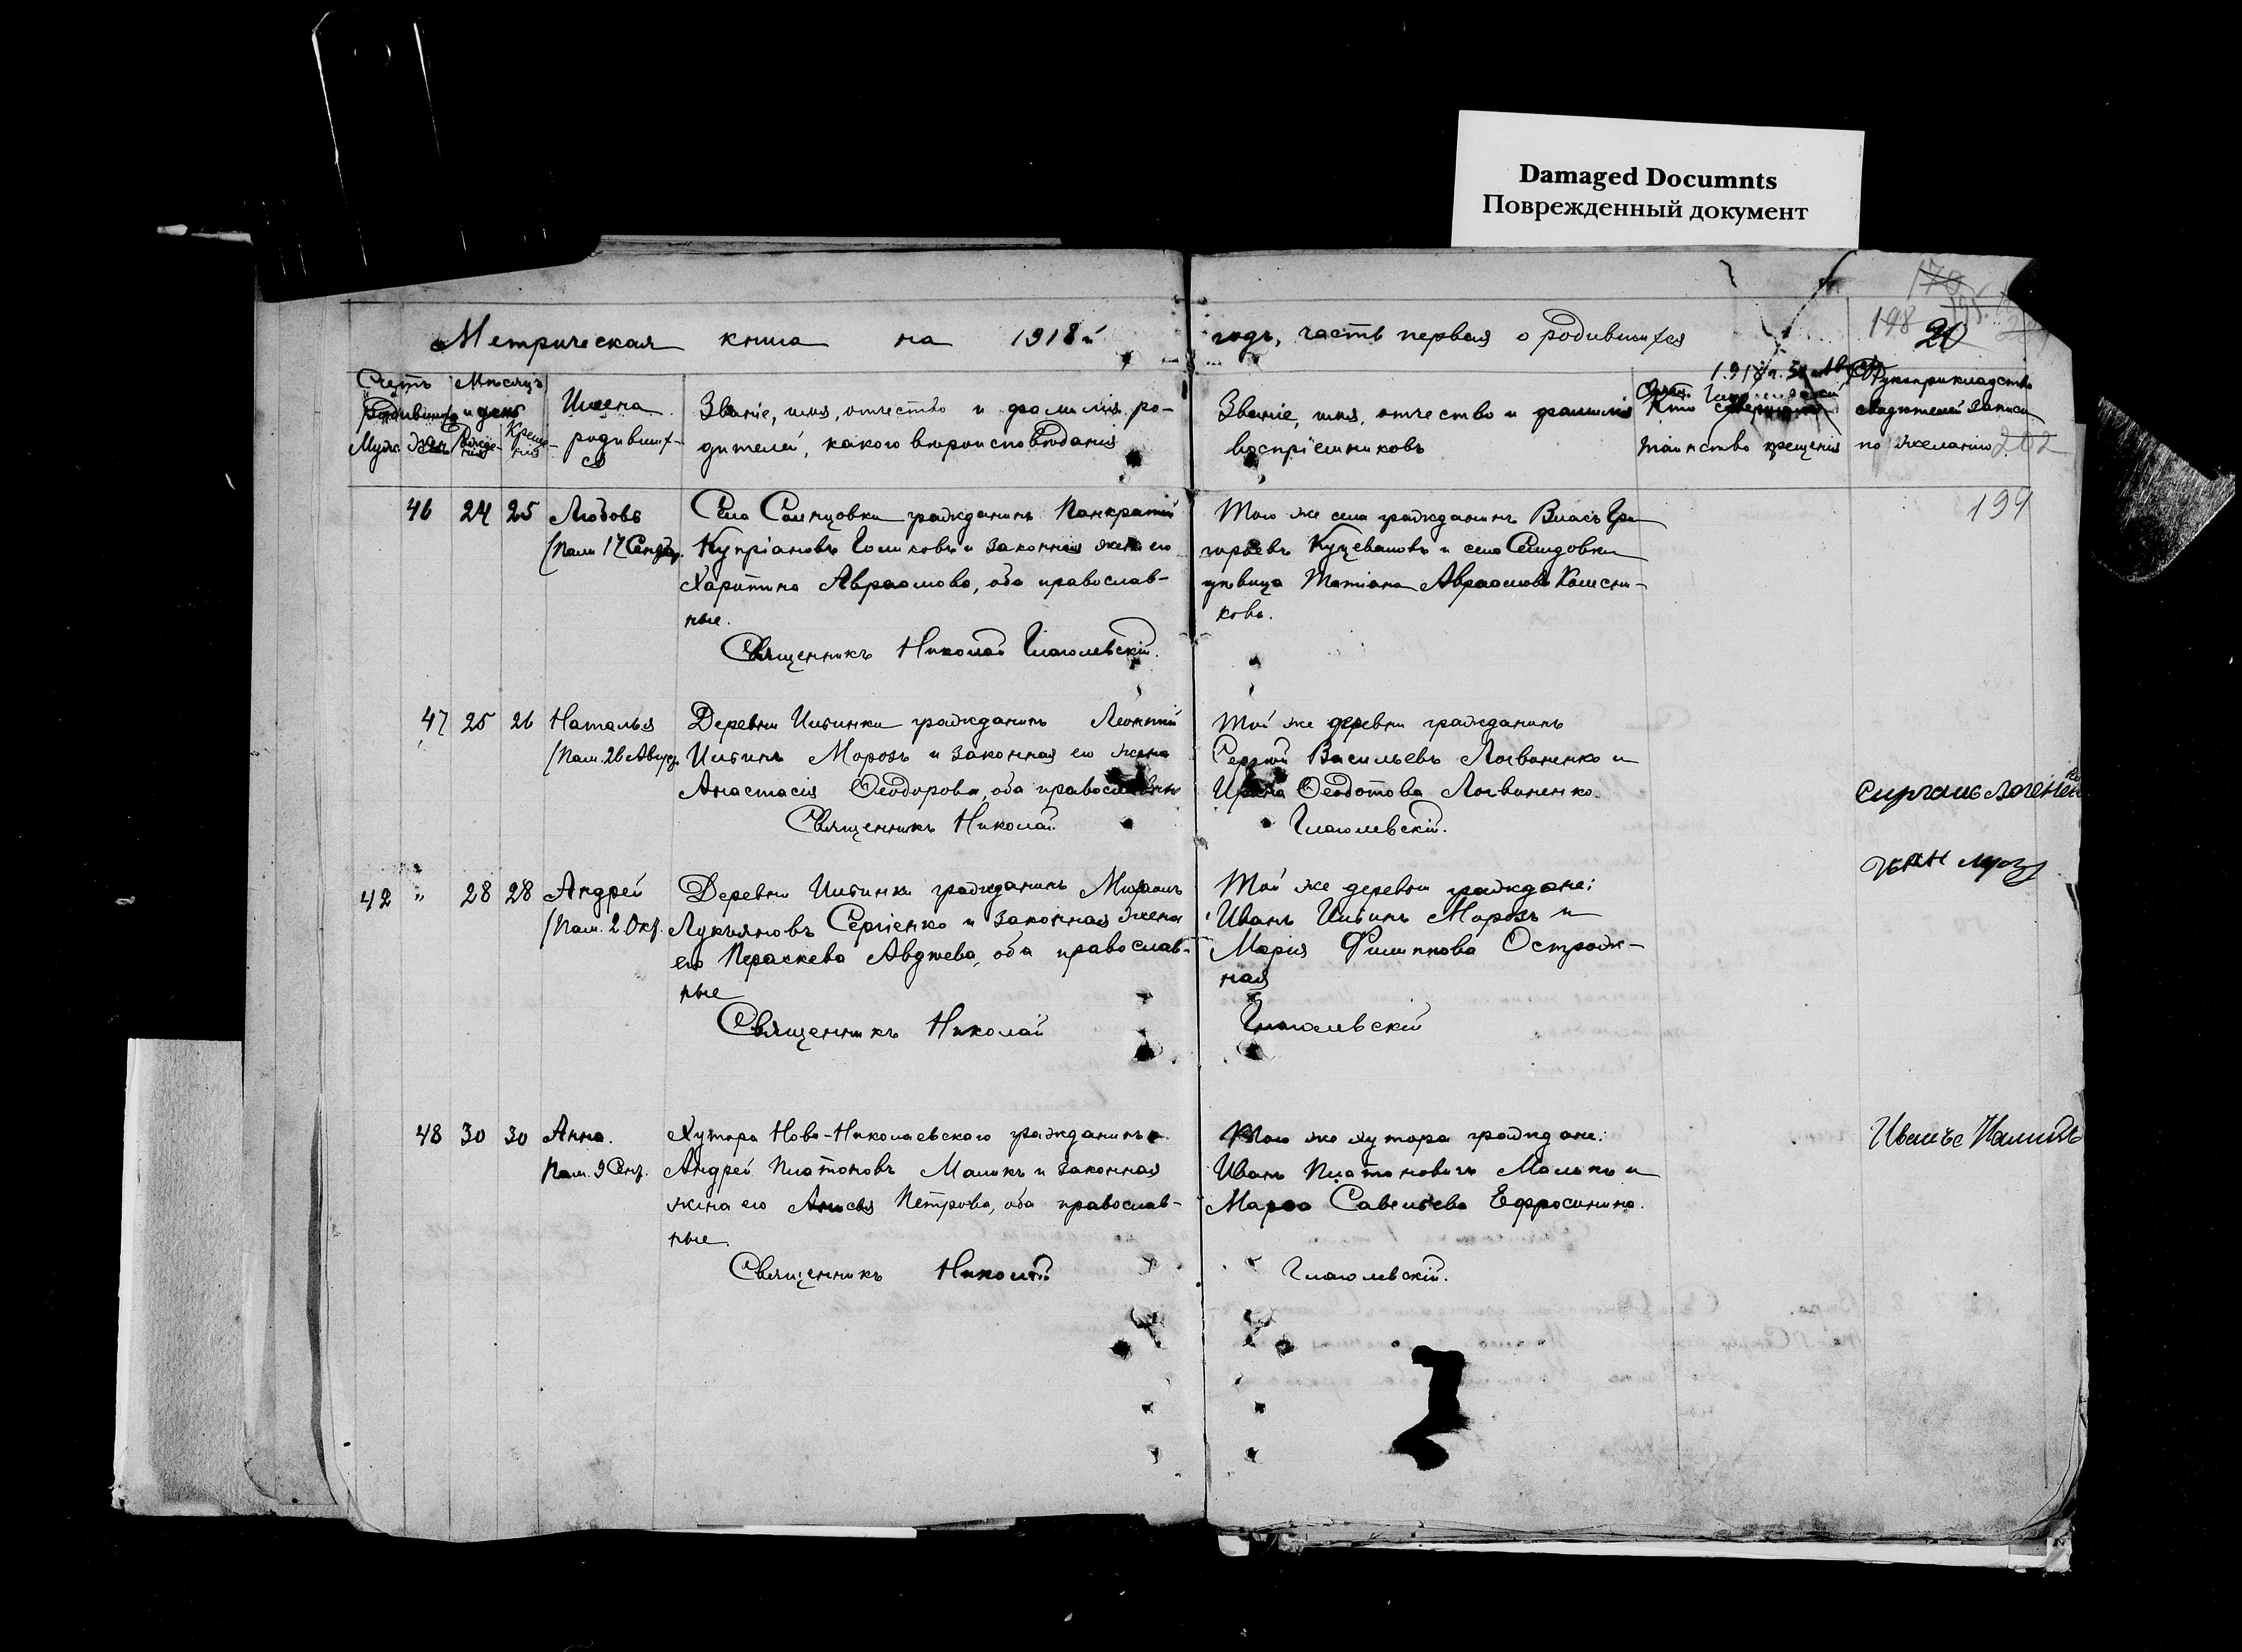 Damaged Documnts
Поврежденный документ
Метрическая книга на 1918й годъ, часть первая о родившихся
170
198
20
Счетъ родившихся
Муж. Жен.
Мѣсяцъ и день
Рожденія
Крещенія
Имена родивших-
ся
Званіе, имя, отчество и фамилія ро-
дителей, какого вѣроисповѣданія
Званіе, имя, отчество и фамилія
воспріемниковъ
Кто совершалъ
таинство крещенія
Рукоприкладство
свидѣтелей записи
по желанію
202
199
46 24 25 Любовь
(Пам. 17 Сентяб.
Села Солнцовки гражданинъ Панкратій
Купріановъ Голиковъ и законная жена его
Харитина Авраамова, оба православ-
ные.
Священникъ Николай Глаголевскій.
Того же села гражданинъ Власъ Гри
горьевъ Куцевановъ и села Селидовки
Татіана Авраамова
ковъ.
47 25 26 Наталья
(Пам. 26 Август.
Деревни Ильинки гражданинъ Леонтій
Ильинъ Морозъ и законная его жена
Анастасія Ѳеодорова, оба православны
Священникъ Николай Глаголевскій.
Той же деревни гражданинъ
Сергѣй Васильевъ Логвиненко и
Ирина Ѳеодотова Логвиненко.
42 " 28 28 Андрей
(Пам. 2 Окт.
Деревни Ильинки гражданинъ
Лукьяновъ Сергіенко и законная жена
его Параскева Авдѣева, оба православ-
ные
Священникъ Николай Глаголевскій
Той же деревни граждане:
Иванъ Ильинъ Морозъ и
Марія Филиппова Острож-
ная
48 30 30 Анна.
Пам. 9 Сент.
Хутора Ново-Николаевского гражданинъ
Андрей Платоновъ Маликъ и законная
жена его Анисья Петрова, оба православ-
ные.
Священникъ Николай Глаголевскій.
Того же хутора граждане:
Иванъ Платоновичъ Маликъ и
Марѳа Савельева Ефросинина.